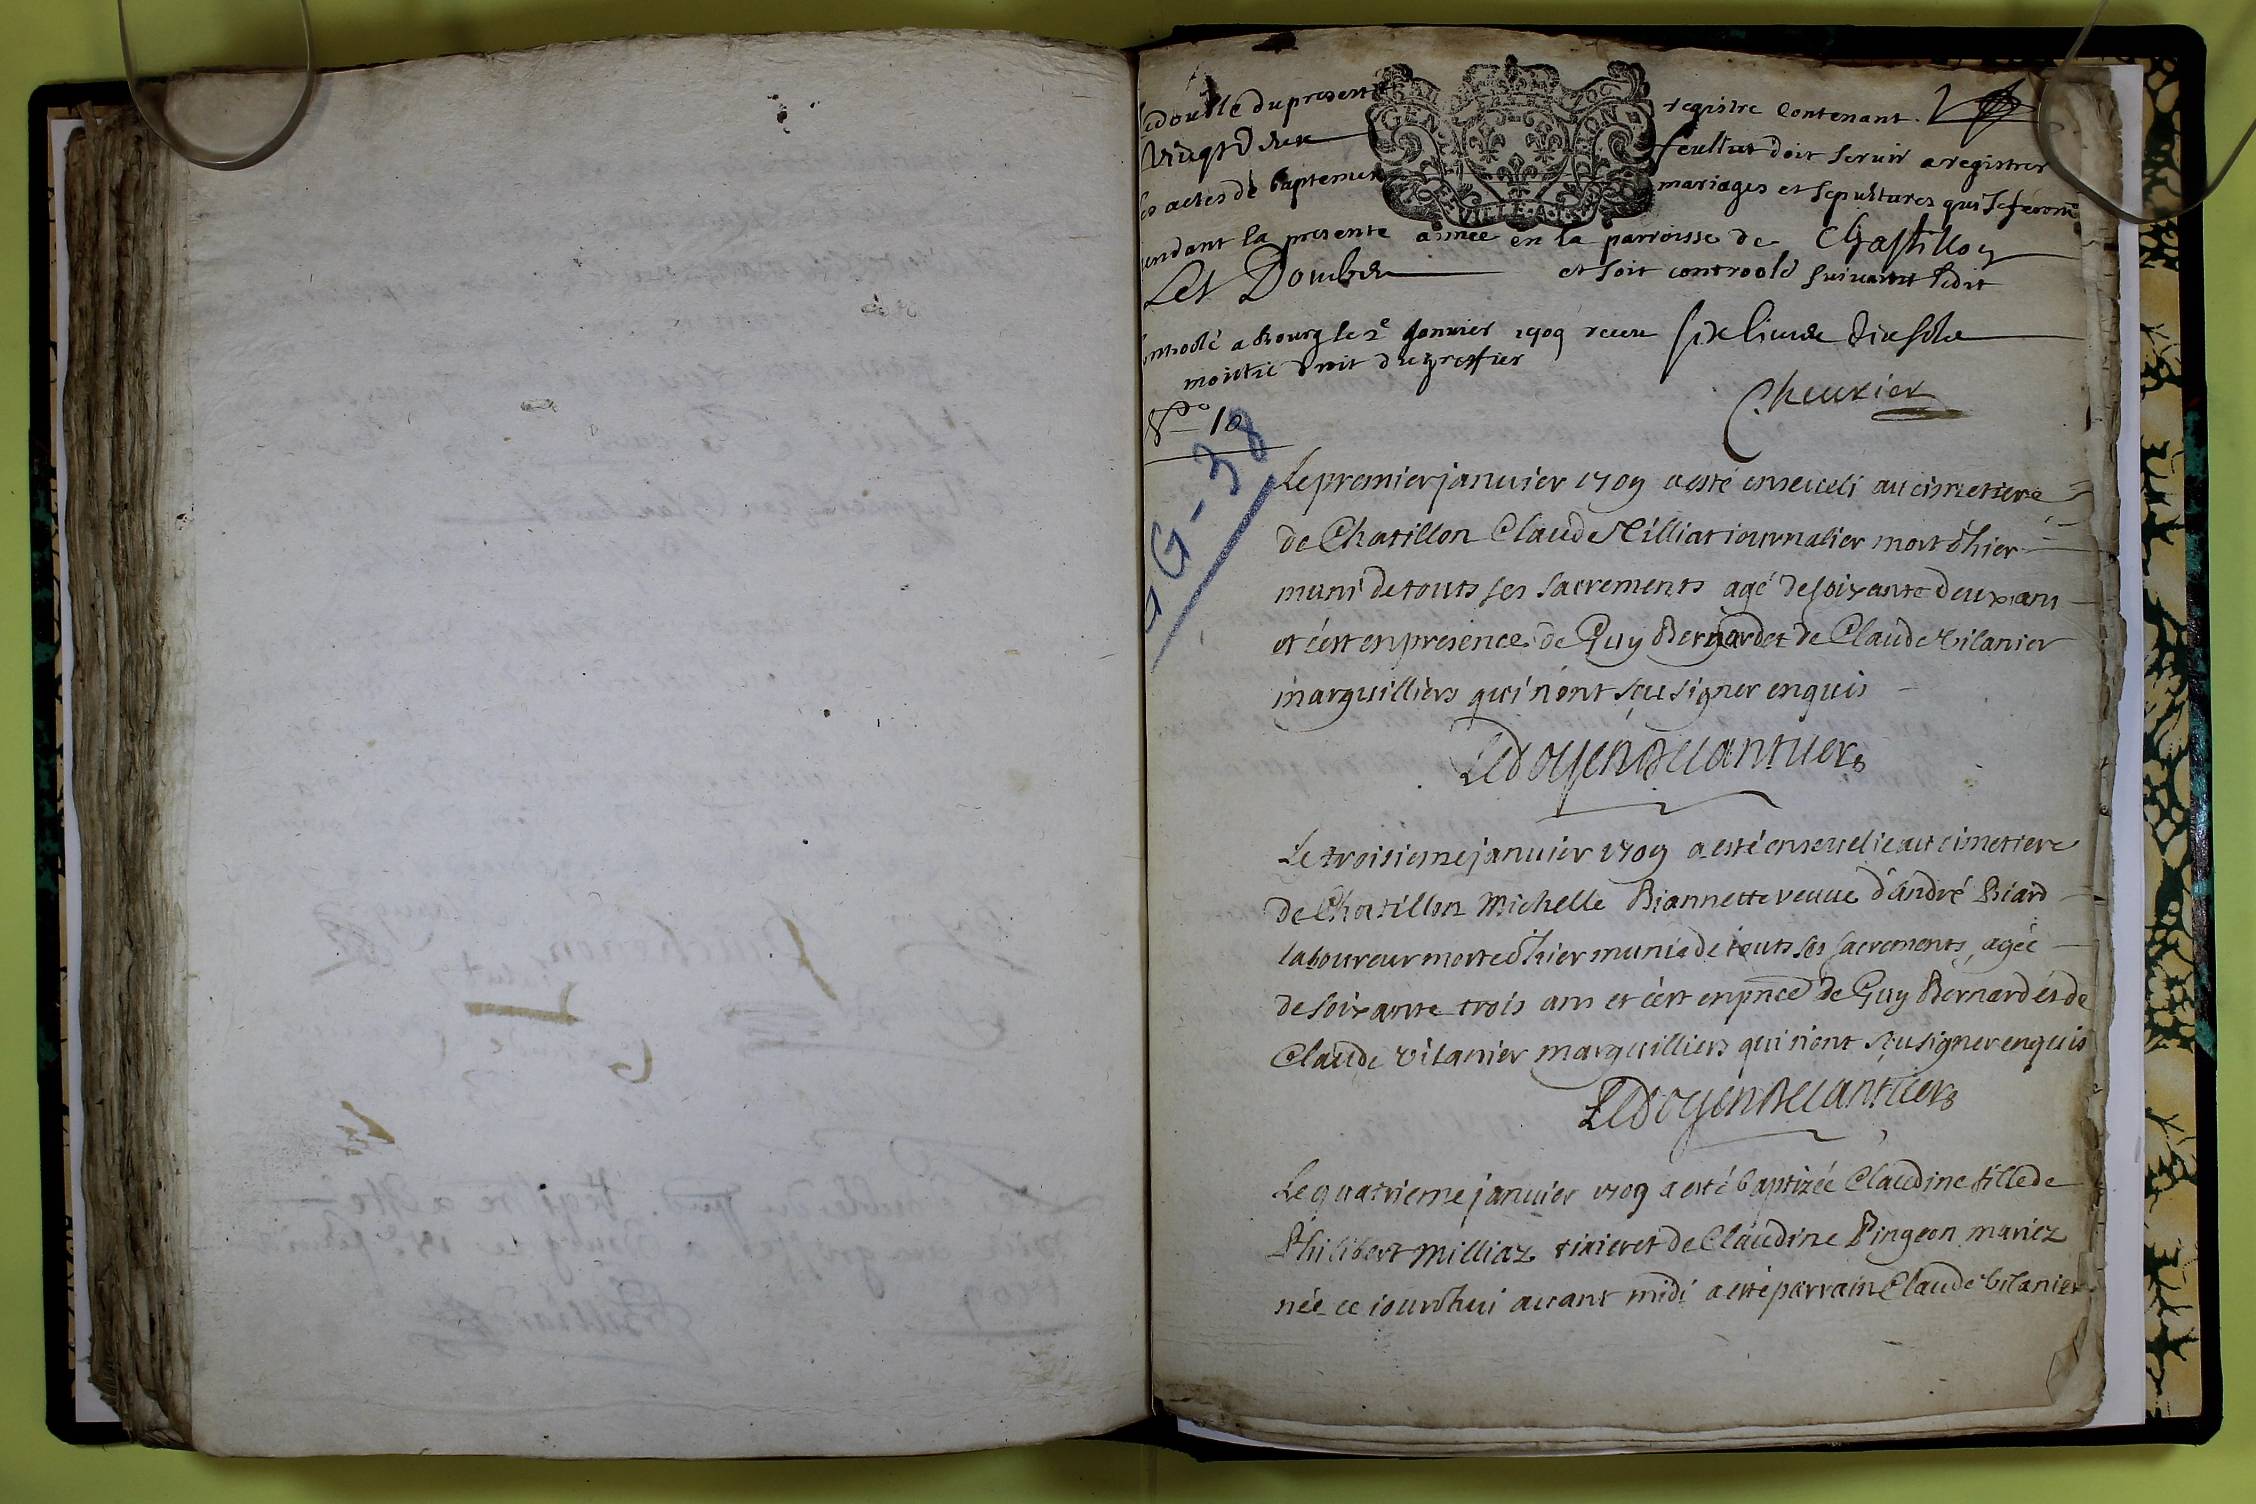 Le double du present registre contenant
vingt deux feuillet doit servir a registrer
les actes de baptemes mariages et sepultures qui se feront
pendant la presente année en la parroisse de Chastillon
Les Dombes et soit controolé suivant ledit
controolé a Bourg le 2e Janvier 1709 receu six livres dix sols
moitié droit du greffier
Cheurier
No 18
GG-38
Le premier janvier 1709 a esté enseueli au cimetiere
de Chatillon Claude Tilliat iournalier mort d'hier
muni de touts ses sacrements agé de soixante deux ans
et c'est en presence de Guy Bernard et de Claude Vilanier
marguilliers qui n'ont sçu signer enquis
Le doyen Decantuers
Le troisieme janvier 1709 a esté enseuelie au cimetiere
de Chatillon Michelle Biannette veuue d'andré Biard
laboureur morte d'hier munie de touts ses sacrements, agée
de soixante trois ans et c'est en pnce de Guy Bernard et de
Claude Vilanier marguilliers qui n'ont sçu signer enquis
Le doyen Decantuers
Le quatrieme janvier 1709 a esté baptizée Claudine fille de
Philibert Milliaz tixier et de Claudine Pingeon mariez
née ce iourd'hui auant midi a esté parrain Claude Vilanier